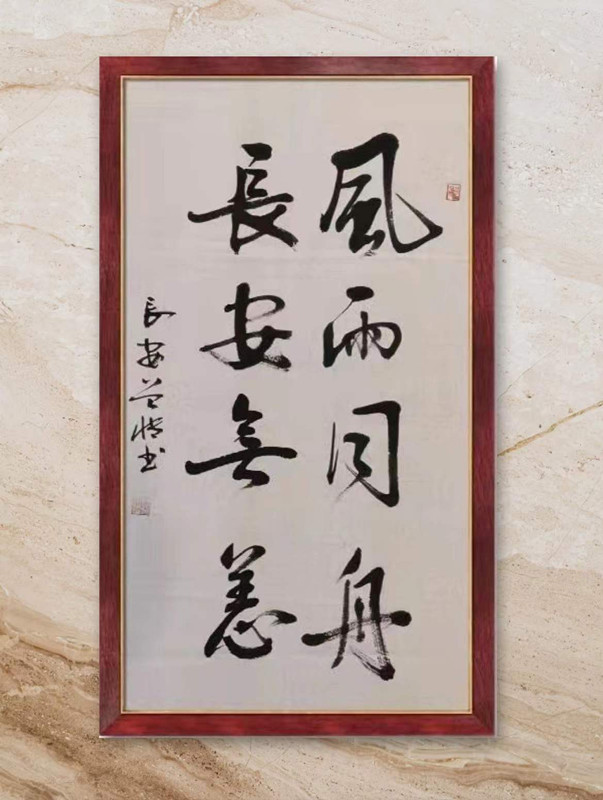 風雨同舟
長安無恙
長安书